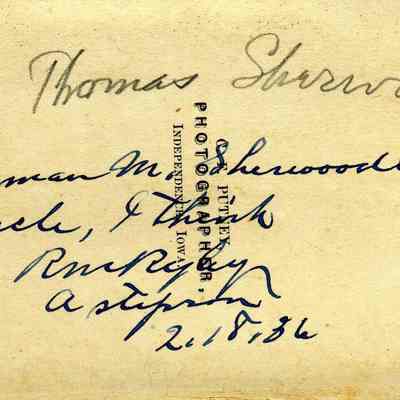 Thomas Sherwo
man M. Sherwood
cle, I think
A stepson
2.18.36
PUTNEY,
PHOTOGRAPHER,
INDEPENDENCE, IOWA